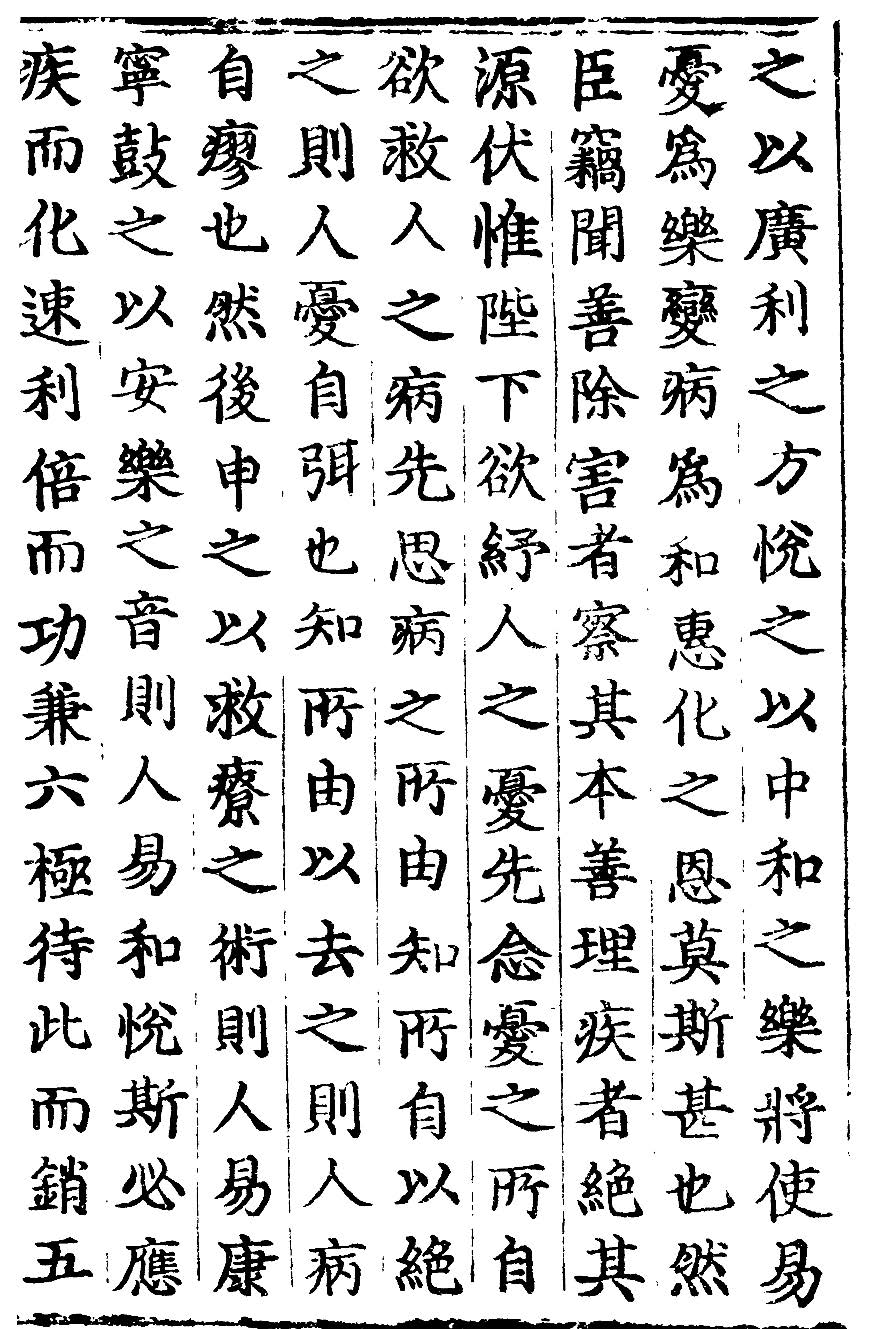 之以廣利之方悅之以中和之樂將使易
憂爲樂變病爲和惠化之恩莫斯甚也然
臣竊聞善除害者察其本善理疾者絕其
源伏惟陛下欲紓人之憂先念憂之所自
欲救人之病先思病之所由知所自以絕
之則人憂自弭也知所由以去之則人病
自瘳也然後申之以救療之術則人易康
寧鼓之以安樂之音則人易和悅斯必應
疾而化速利倍而功兼六極待此而銷五